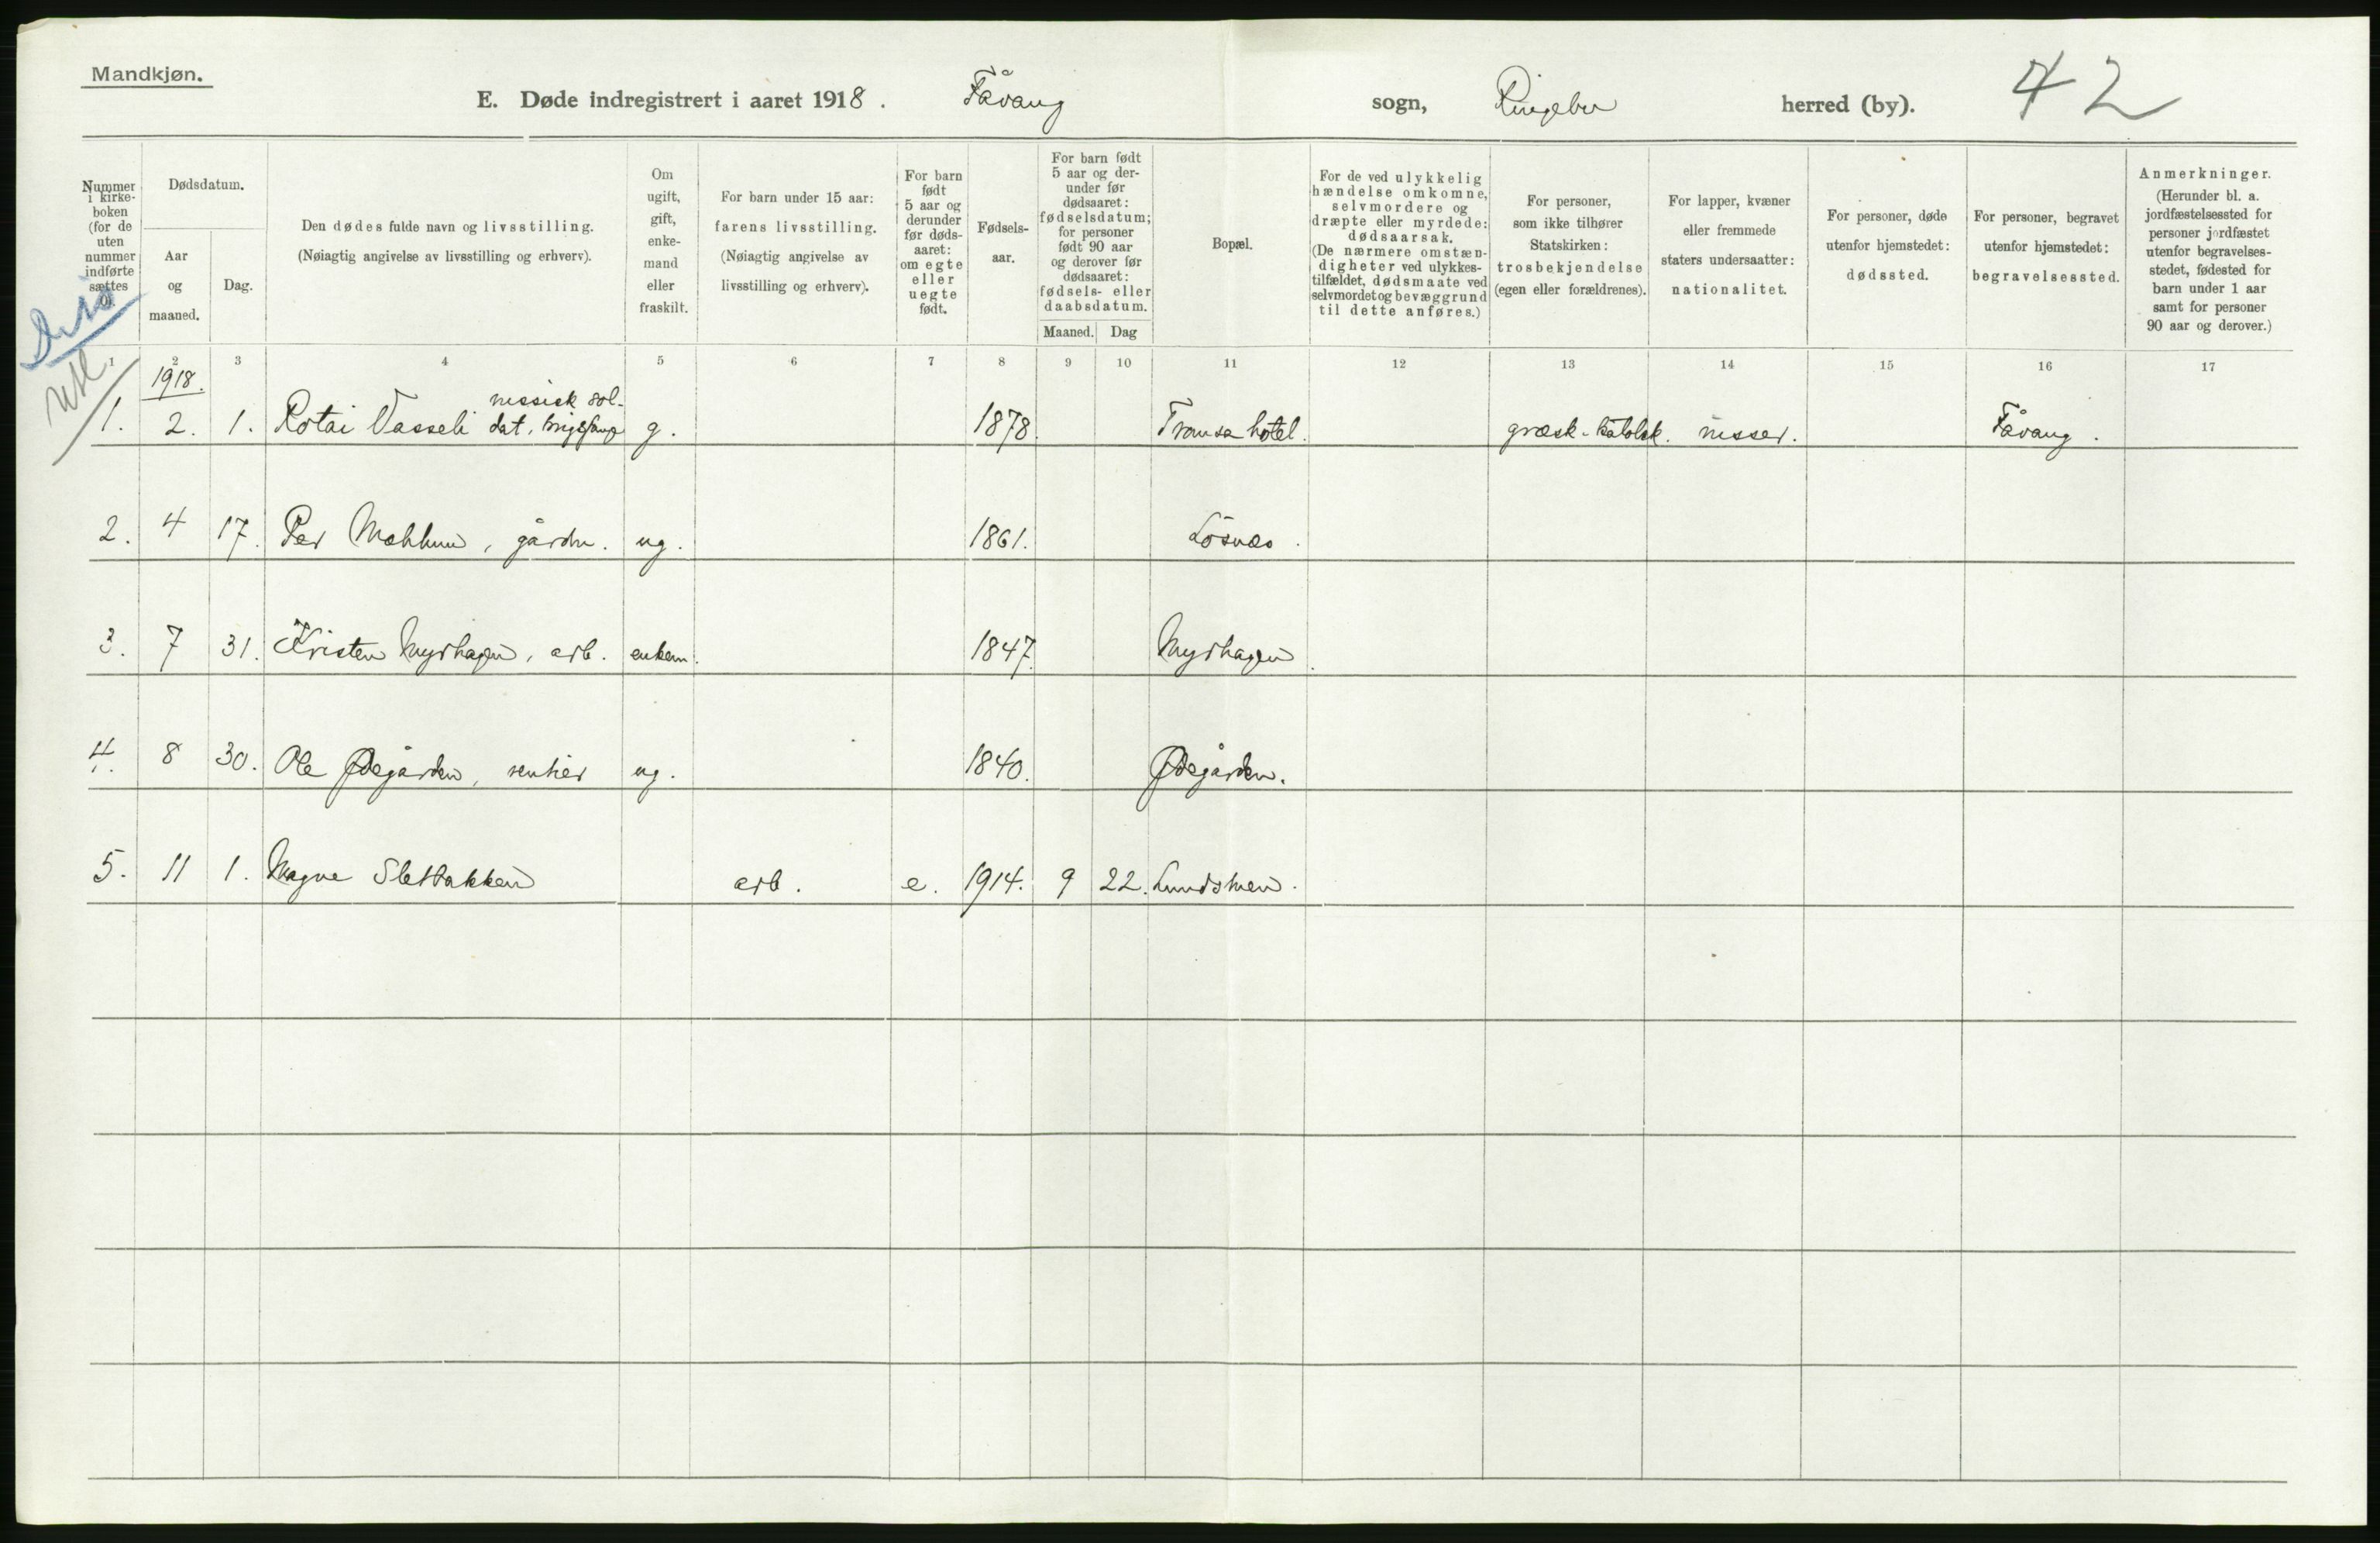 Mandkjøn.
E. Døde indregistrert i aaret 1918. Fåvang sogn, Ringebu herred (by). 42
Nummer i kirkeboken (for de uten nummer indførte sættes 0).
Dødsdatum.
Aar og maaned.
Dag.
Den dødes fulde navn og livsstilling.
(Nøiagtig angivelse av livsstilling og erhverv).
Om ugift, gift, enkemand eller fraskilt.
For barn under 15 aar:
farens livsstilling.
(Nøiagtig angivelse av livsstilling og erhverv).
For barn født 5 aar og derunder før dødsaaret: om egte eller uegte født.
Fødselsaar.
For barn født 5 aar og derunder før dødsaaret: fødselsdatum; for personer født 90 aar og derover før dødsaaret: fødsels- eller daabsdatum.
Maaned. Dag
Bopæl.
For de ved ulykkelig hændelse omkomne, selvmordere og dræpte eller myrdede: dødsaarsak.
(De nærmere omstændigheter ved ulykkestilfældet, dødsmaate ved selvmordet og bevæggrund til dette anføres.)
For personer, som ikke tilhører Statskirken: trosbekjendelse (egen eller forældrenes).
For lapper, kvæner eller fremmede staters undersaatter: nationalitet.
For personer, døde utenfor hjemstedet: dødssted.
For personer, begravet utenfor hjemstedet: begravelsessted.
Anmerkninger.
(Herunder bl. a. jordfæstelsessted for personer jordfæstet utenfor begravelsesstedet, fødested for barn under 1 aar samt for personer 90 aar og derover.)
1 2 3 4 5 6 7 8 9 10 11 12 13 14 15 16 17
1918.
1. 2. 1. Rotai Vasseli russisk soldat, krigsfange g. 1878. Tromsa hotel. græsk-katolsk. russer. Fåvang.
2. 4 17. Per Mæhlum, gårdbr. ug. 1861. Lösnæs.
3. 7 31. Kristen Myrhagen, arb. enkem. 1847. Myrhagen.
4. 8 30. Ole Ødegården, rentier ug. 1840. Ødegården.
5. 11 1. Magne Sletbakken arb. e. 1914. 9 22. Lundsmoen.